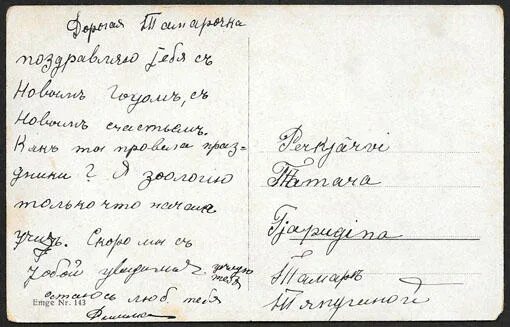 Дорогая Тамарочка
поздравляю тебя съ
Новымъ Годомъ, съ
Новымъ счастьемъ.
Какъ ты провела праз-
дники? Я зоологію
только что начала
учить. Скоро мы съ
тобой увидимся. цѣлую
тебя
остаюсь люб. тебя
Emge Nr. 143
Perkjärvi
Tamara
Tjapugina
Тамарѣ
Тяпугиной